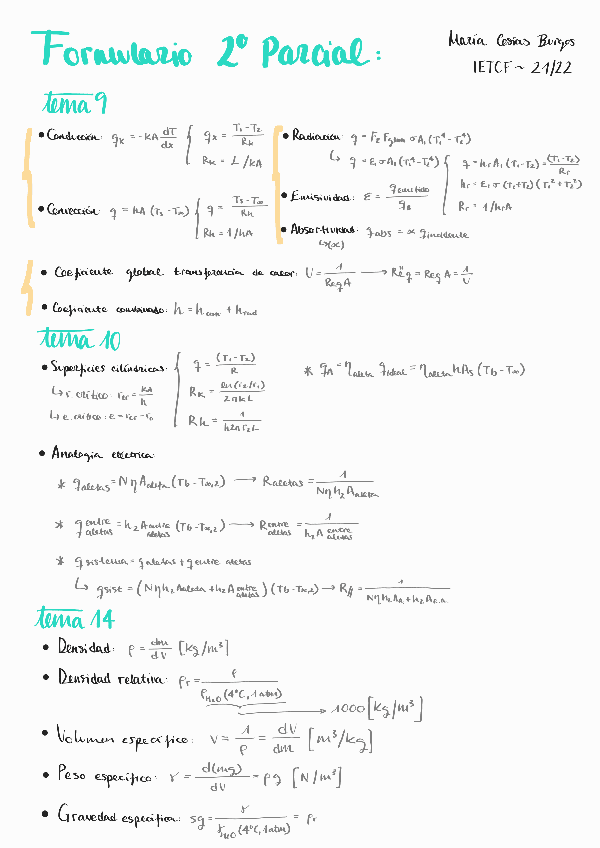 Formulario 2º Parcial:
María Cosías Burgos
IETCF ~ 21/22
tema 9
• Conducción: qx = -kA dT/dx { qx = (T1-T2)/Rk
Rk = L/kA
• Convección: q = hA (Ts - T∞) { q = (Ts-T∞)/Rh
Rh = 1/hA
• Radiación: q = Fε Fgeom σ A1 (T1⁴ - T2⁴)
↳ q = ε1 σ A1 (T1⁴ - T2⁴) { q = hr A1 (T1 - T2) = (T1-T2)/Rr
hr = ε1 σ (T1+T2) (T1² + T2²)
Rr = 1/hrA
• Emisividad: ε = q emitido/qs
• Absortividad: qabs = α q incidente
↳(α)
• Coeficiente global transferencia de calor: U = 1/(Req A) → R"eq = Req A = 1/U
• Coeficiente combinado: h = hconv + hrad
tema 10
• Superficies cilíndricas: { q = (T1-T2)/R
↳ r crítico: rcr = kA/h
Rk = ln(r2/r1)/(2πkL)
↳ e. crítico: e = rcr - r0
Rh = 1/(h2πr2L)
* qA = ηaleta qideal = ηaleta hAs (Tb - T∞)
• Analogía eléctrica:
* qaletas = Nη Aaleta (Tb - T∞,2) → Raletas = 1/(Nηh2 Aaleta)
* q entre aletas = h2 A entre aletas (Tb - T∞,2) → R entre aletas = 1/(h2 A entre aletas)
* qsistema = qaletas + qentre aletas
↳ qsist = (Nηh2 Aaleta + h2 A entre aletas) (Tb - T∞,2) → RA = 1/(Nηh2 Aa. + h2 Ae.a.)
tema 14
• Densidad: ρ = dm/dV [kg/m³]
• Densidad relativa: ρr = ρ/ρH2O (4ºC, 1atm)
→ 1000 [kg/m³]
• Volumen específico: v = 1/ρ = dV/dm [m³/kg]
• Peso específico: γ = d(mg)/dV = ρg [N/m³]
• Gravedad específica: sg = γ/γH2O (4ºC, 1atm) = ρr